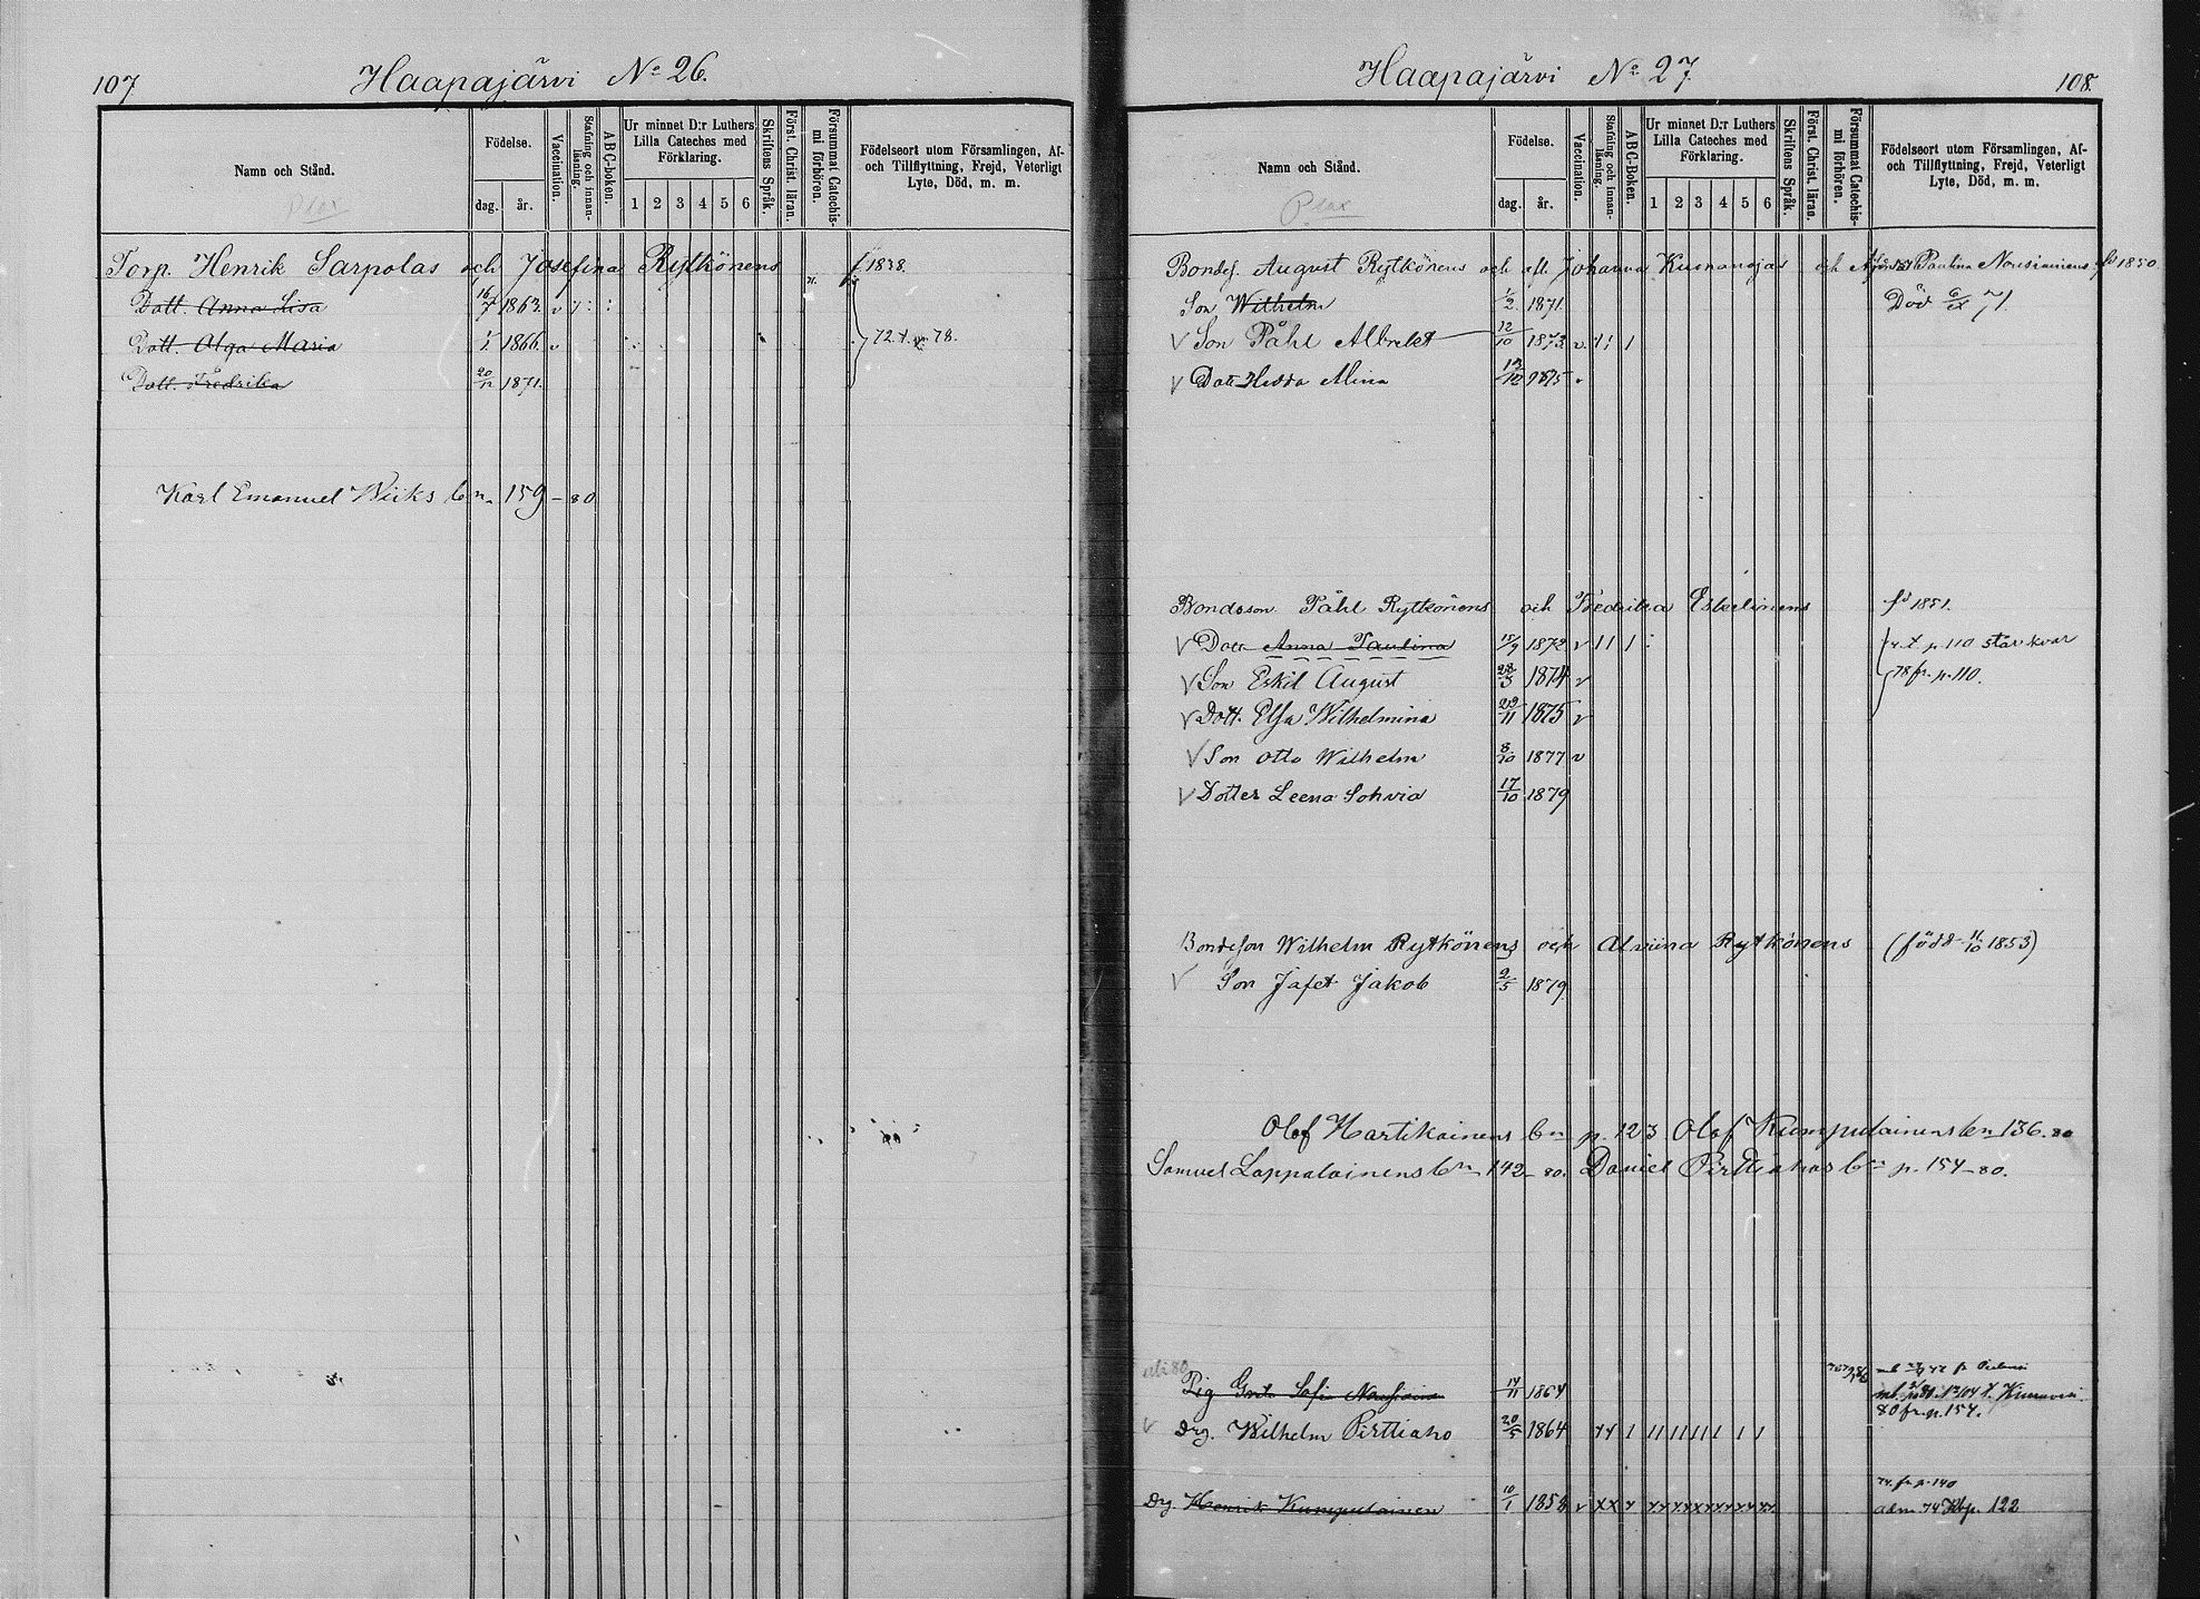 107
Haapajärvi No 26.
Namn och Stånd.
Födelse.
dag.
år.
Vaccination.
Stafning och innan-läsning.
ABC-Boken.
Ur minnet D:r Luthers Lilla Cateches med Förklaring.
1 2 3 4 5 6
Skriftens Språk.
Först. Christ. läran.
Försummat Catechis-mi förhören.
Födelseort utom Församlingen, Af- och Tillflyttning, Frejd, Veterligt Lyte, Död, m. m.
Torp. Henrik Sarpolas och Josefina Rytkönens f. 1838.
Dott. Anna Lisa 16/7 1863. v
Dott. Olga Maria 1/1 1866. v 72 t. 78.
Dott. Fredrika 20/12 1871.
Karl Emanuel Wiiks bn. 159 - 80
Haapajärvi No 27.
108.
Namn och Stånd.
Födelse.
dag.
år.
Vaccination.
Stafning och innan-läsning.
ABC-Boken.
Ur minnet D:r Luthers Lilla Cateches med Förklaring.
1 2 3 4 5 6
Skriftens Språk.
Först. Christ. läran.
Försummat Catechis-mi förhören.
Födelseort utom Församlingen, Af- och Tillflyttning, Frejd, Veterligt Lyte, Död, m. m.
Bondes. August Rytkönens och afl. Johanna och Paulina Nousiainens fd 1850.
Son Wilhelm 1/2 1871. Död 71.
V Son Påhl Albrekt 12/10 1873 v.
V Dott Hedda Mina 12/12 1875
Bondeson Påhl Rytkönens och Fredrika Eskelinens fd 1851.
V Dott Anna Paulina 15/9 1872 v p. 110 står kvar
V Son Eskil August 28/3 1874 v 78 fr. p. 110.
V Dott. Elsa Wilhelmina 29/11 1875 v
V Son Otto Wilhelm 8/10 1877 v
V Dotter Leena Sohvia 17/10 1879
Bondeson Wilhelm Rytkönens och Alviina Rytkönens (född 11/10 1853)
V Son Jafet Jakob 2/5 1879
Olof Hartikainens bn p. 123 Olof Kumpulainens bn 136. 80
Samuel Lappalainens bn 142 - 80. Daniel Pirttiahos bn p. 154 - 80.
Pig Greta Sofia 14/11 1864
80 fr. p. 154.
V Drg. Wilhelm Pirttiaho 20/5 1864
74. fr. p. 140
Drg. Henrik Kumpulainen 10/1 1858 v adm. 74 Kbp. 122